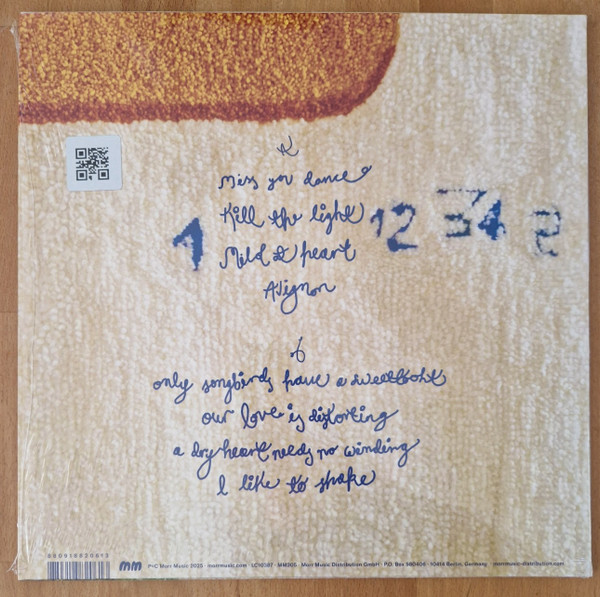 A
Miss you dance
Kill the light
1 12 34 2
Mild at heart
Avignon
b
only songbirds have a sweettooth
our love is distorting
a dry heart needs no winding
I like to shake
mm P+C Morr Music 2025 · morrmusic.com · LC10387 · MM205 · Morr Music Distribution GmbH · P.O. Box 580406 · 10414 Berlin, Germany · morrmusic-distribution.com